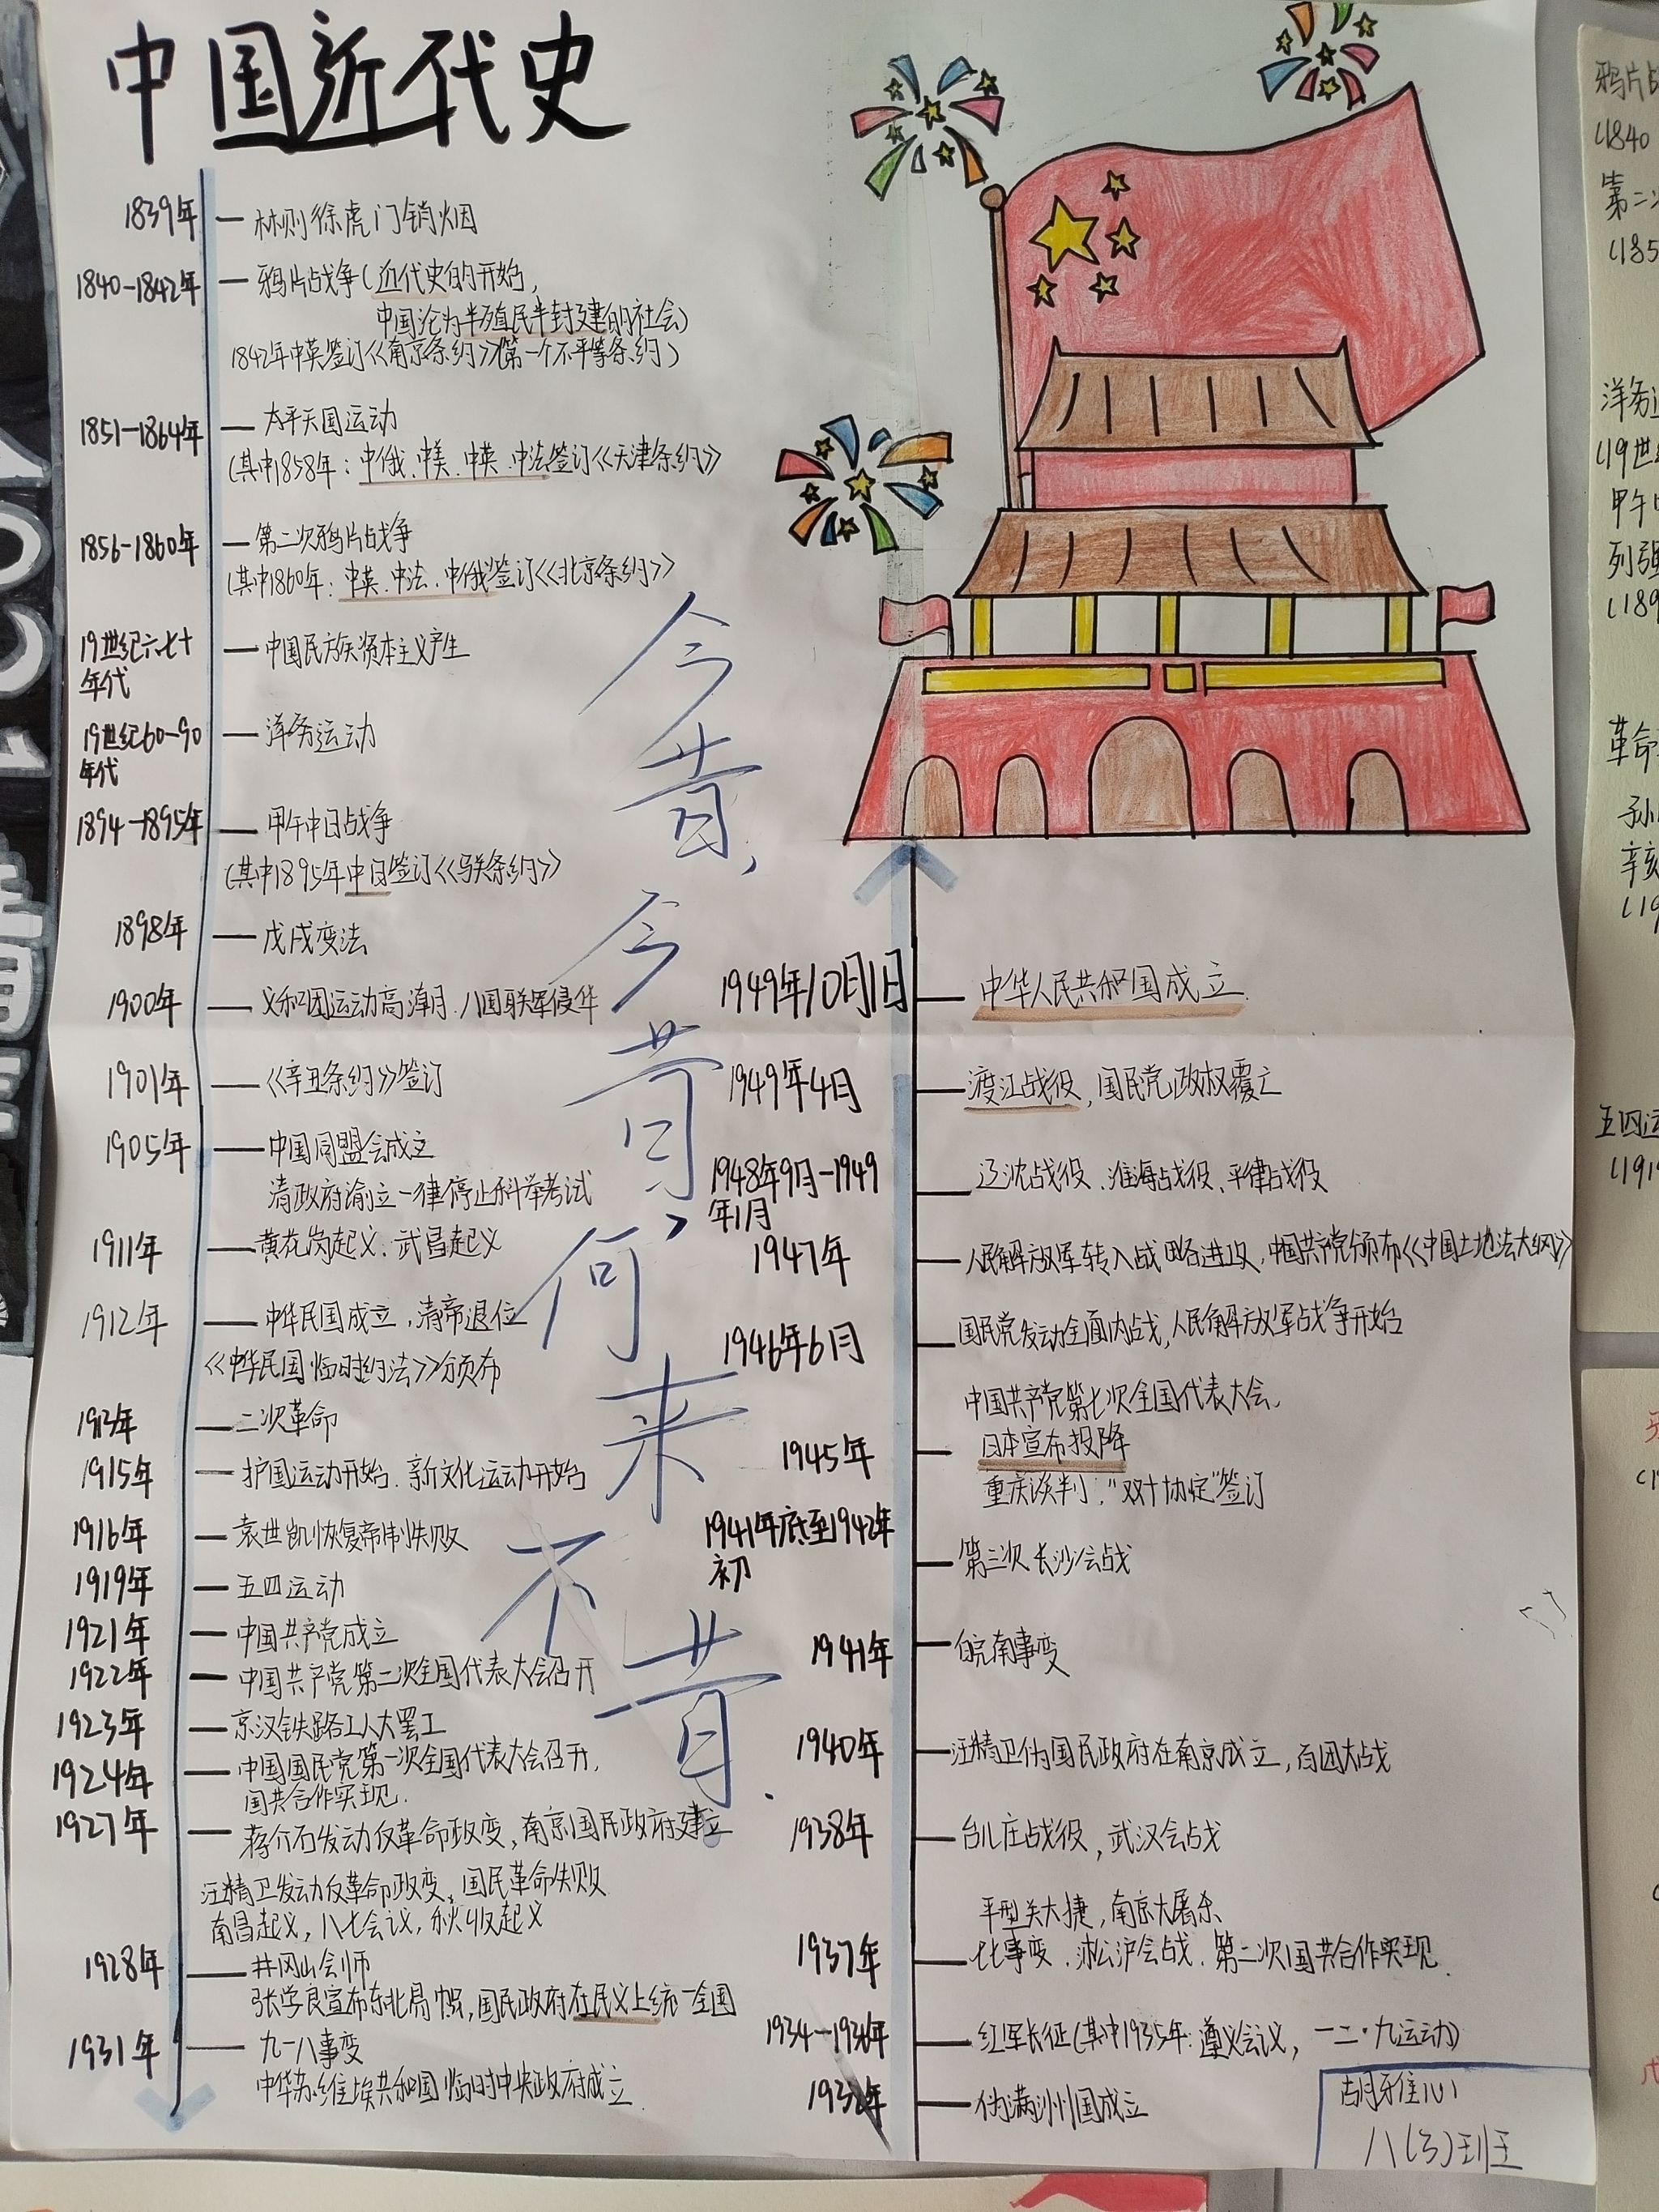 中国近代史
1839年 林则徐虎门销烟
1840-1842年 鸦片战争(近代史的开始,
中国沦为半殖民半封建的社会)
1842年中英签订《南京条约》(第一个不平等条约)
1851-1864年 太平天国运动
(其中1858年:中俄、中美、中英、中法签订《天津条约》
1856-1860年 第二次鸦片战争
(其中1860年:中英、中法、中俄签订《北京条约》
19世纪六七十
年代 中国民族资本主义产生
19世纪60-90
年代 洋务运动
1894-1895年 甲午中日战争
(其中1895年中日签订《马关条约》
1898年 戊戌变法
1900年 义和团运动高潮、八国联军侵华
1901年 《辛丑条约》签订
1905年 中国同盟会成立
清政府谕立一律停止科举考试
1911年 黄花岗起义、武昌起义
1912年 中华民国成立,清帝退位
《中华民国临时约法》颁布
1913年 二次革命
1915年 护国运动开始、新文化运动开始
1916年 袁世凯恢复帝制失败
1919年 五四运动
1921年 中国共产党成立
1922年 中国共产党第二次全国代表大会召开
1923年 京汉铁路工人大罢工
1924年 中国国民党第一次全国代表大会召开,
国共合作实现.
1927年 蒋介石发动反革命政变,南京国民政府建立
汪精卫发动反革命政变、国民革命失败
南昌起义,八七会议,秋收起义
1928年 井冈山会师
张学良宣布东北易帜,国民政府在民义上统一全国
1931年 九一八事变
中华苏维埃共和国临时中央政府成立
今昔,今昔,何来不昔.
1949年10月1日 中华人民共和国成立.
1949年4月 渡江战役,国民党政权覆亡
1948年9月-1949
年1月 辽沈战役、淮海战役、平津战役
1947年 人民解放军转入战略进攻,中国共产党颁布《中国土地法大纲》
1946年6月 国民党发动全面内战,人民解放军战争开始
中国共产党第七次全国代表大会、
1945年 日本宣布投降
重庆谈判,"双十协定"签订
1941年底至1942年
初 第三次长沙会战
1941年 皖南事变
1940年 汪精卫伪国民政府在南京成立,百团大战
1938年 台儿庄战役,武汉会战
平型关大捷,南京大屠杀
1937年 七七事变、淞沪会战、第二次国共合作实现.
1934-1936年 红军长征(其中1935年:遵义会议,一二·九运动)
1932年 伪满洲国成立
八(3)班
鸦片
(1840
第二次
(185
洋务
(19世
甲午
列强
(189
革命
孙
辛亥
(19
五四运
(1919